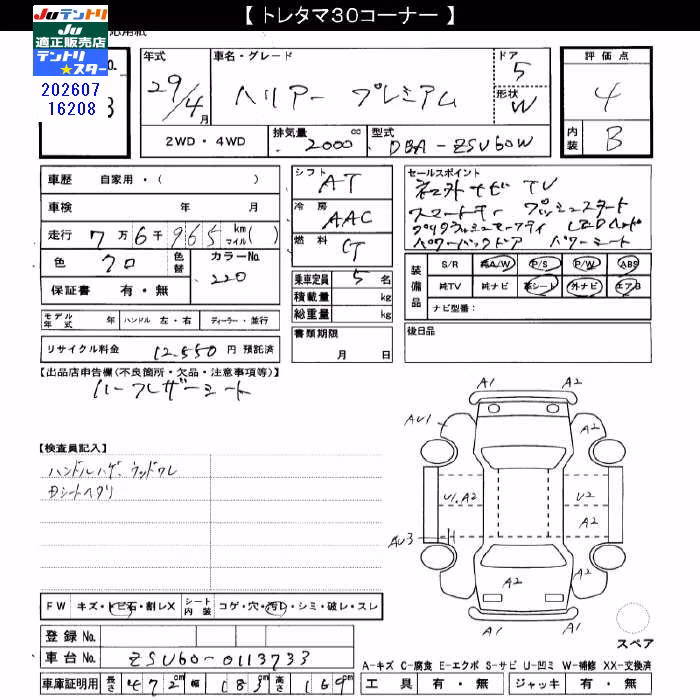 【 トレタマ30コーナー 】
Juテントリ
Ju
適正販売店
テントリ
★スター
202607
16208
年式 29/4月
車名・グレード ハリアー プレミアム
ドア 5
形状 W
評価点 4
内装 B
2WD・4WD
排気量 2000 cc
型式 DBA-ZSU60W
車歴 自家用・( )
車検 年 月
走行 7万6千965 km マイル( )
色 クロ 色替
カラーNo. 220
保証書 有・無
シフト AT
冷房 AAC
燃料 G
乗車定員 5名
積載量 kg
総重量 kg
セールスポイント
社外ナビ TV
スマートキー プッシュスタート
プリクラッシュセーフティ LEDヘッド
パワーバックドア パワーシート
装備品
S/R 純A/W P/S P/W ABS
純TV 純ナビ 革シート 外ナビ エアB
ナビ型番:
モデル年式 年 ハンドル 左・右 ディーラー・並行
リサイクル料金 12,550 円 預託済
書類期限
月 日
後日品
【出品店申告欄(不良箇所・欠品・注意事項等)】
ハーフレザーシート
【検査員記入】
ハンドルハゲ、ウッドワレ
Dシートヘタリ
A1 A2
AU1 A2
U1.A2 U2
A2
AU3
A2 A2
A1 A1
スペア
FW キズ・トビ石・割レX
シート内装 コゲ・穴・汚レ・シミ・破レ・スレ
登録No.
車台No. ZSU60-0113733
車庫証明用 長さ 472cm 幅 183cm 高さ 169cm
A-キズ C-腐食 E-エクボ S-サビ U-凹ミ W-補修 XX-交換済
工具 有・無 ジャッキ 有・無